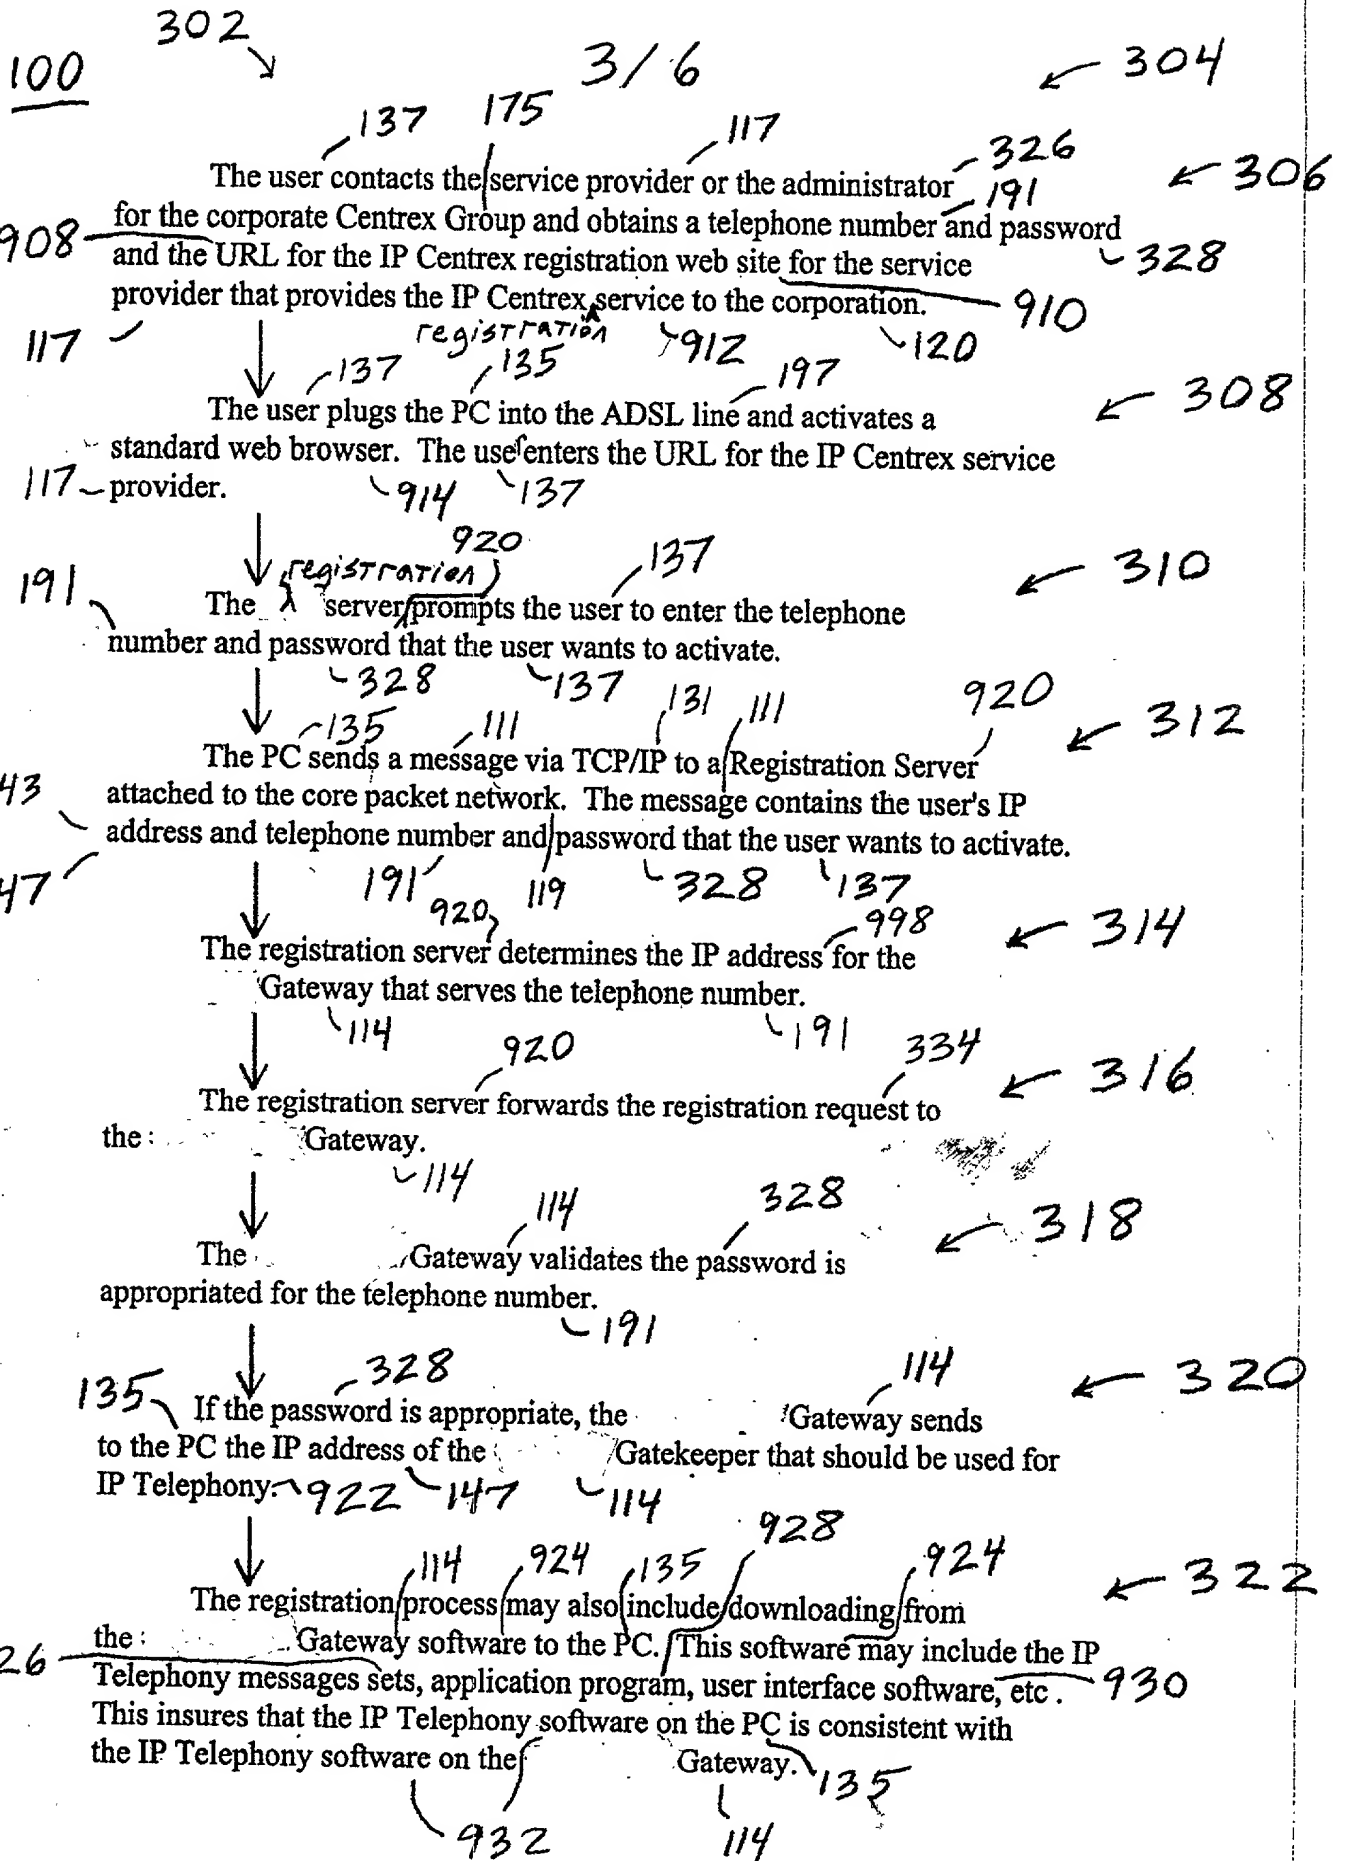 302
3/6
304
100
137 175 117
326
The user contacts the service provider or the administrator
191
306
for the corporate Centrex Group and obtains a telephone number and password
908
and the URL for the IP Centrex registration web site for the service
328
provider that provides the IP Centrex service to the corporation.
910
117
registration
912
120
137 135 197
308
The user plugs the PC into the ADSL line and activates a
standard web browser. The user enters the URL for the IP Centrex service
117 provider.
914 137
920
registration
137
310
191
The server prompts the user to enter the telephone
number and password that the user wants to activate.
328 137 131 920
135 111 111
312
The PC sends a message via TCP/IP to a Registration Server
43
attached to the core packet network. The message contains the user's IP
address and telephone number and password that the user wants to activate.
47
191 119 328 137
920 998
314
The registration server determines the IP address for the
Gateway that serves the telephone number.
114 191
920 334
316
The registration server forwards the registration request to
the Gateway.
114
114 328
318
The Gateway validates the password is
appropriated for the telephone number.
191
135 328 114
320
If the password is appropriate, the Gateway sends
to the PC the IP address of the Gatekeeper that should be used for
IP Telephony. 922 147 114
928
114 924 135 924
322
The registration process may also include downloading from
the Gateway software to the PC. This software may include the IP
26
Telephony messages sets, application program, user interface software, etc. 930
This insures that the IP Telephony software on the PC is consistent with
the IP Telephony software on the Gateway. 135
932 114